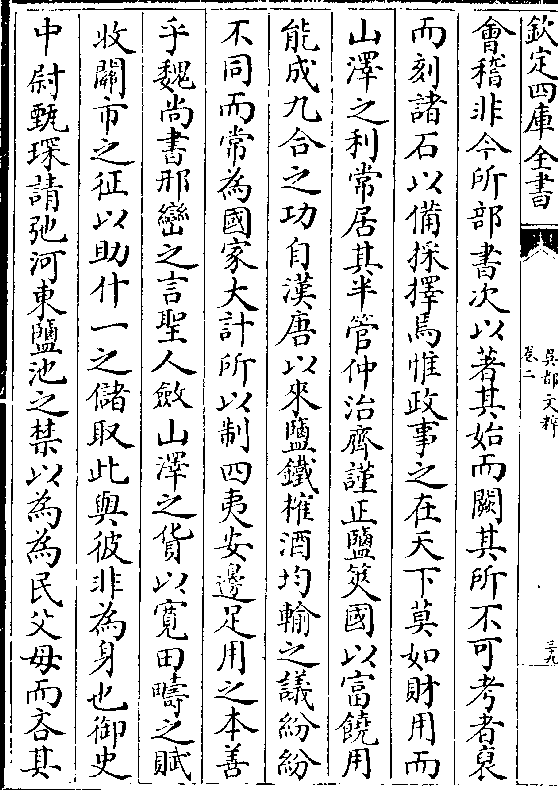 欽定四庫全書
吳都文粹
卷二
三九
會稽非今所部書次以著其始而闕其所不可考者裒
而刻諸石以備採擇焉惟政事之在天下莫如財用而
山澤之利常居其半管仲治齊謹正鹽筴國以富饒用
能成九合之功自漢唐以來鹽鐵榷酒均輸之議紛紛
不同而常為國家大計所以制四夷安邊足用之本善
乎魏尚書邢巒之言聖人斂山澤之貨以寛田疇之賦
收闗市之征以助什一之儲取此與彼非為身也御史
中尉甄琛請弛河東鹽池之禁以為為民父母而吝其